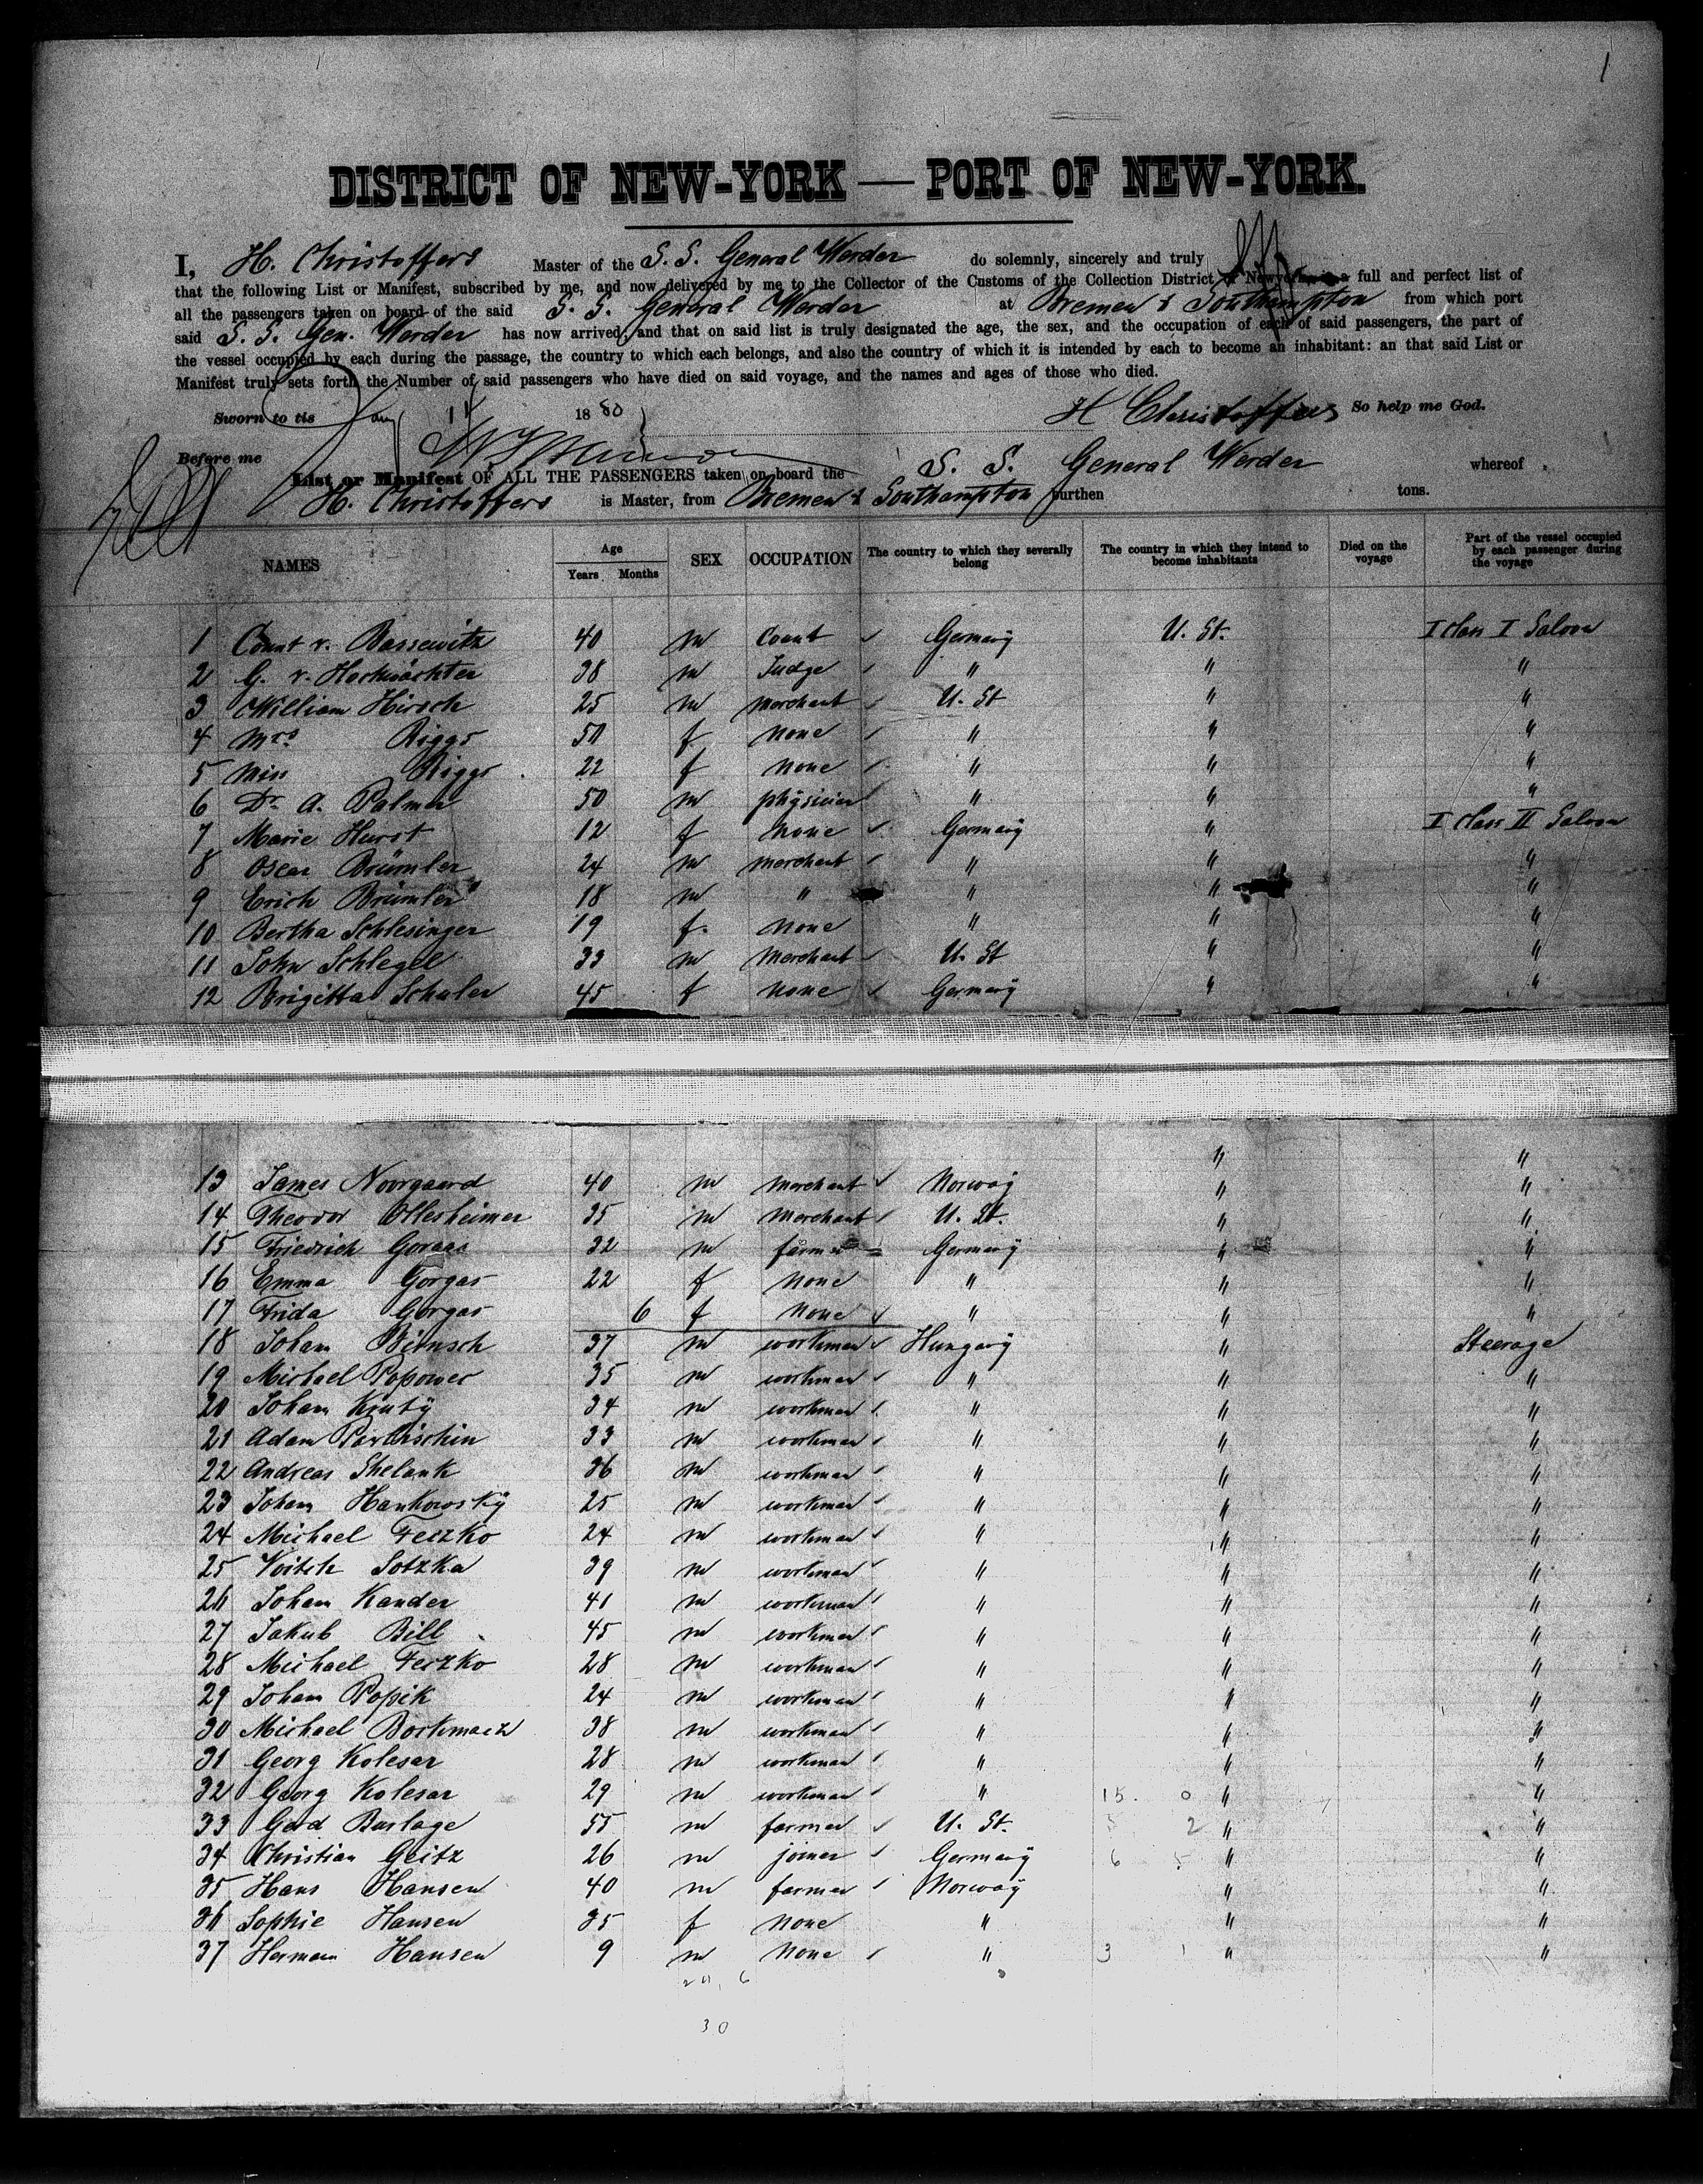 1
DISTRICT OF NEW-YORK — PORT OF NEW-YORK.
I, H. Christoffers Master of the S. S. General Werder do solemnly, sincerely and truly
that the following List or Manifest, subscribed by me, and now delivered by me to the Collector of the Customs of the Collection District of Newyork is a full and perfect list of
all the passengers taken on board of the said S. S. General Werder at Bremen & Southampton from which port
said S. S. Gen. Werder has now arrived, and that on said list is truly designated the age, the sex, and the occupation of each of said passengers, the part of
the vessel occupied by each during the passage, the country to which each belongs, and also the country of which it is intended by each to become an inhabitant: an that said List or
Manifest truly sets forth the Number of said passengers who have died on said voyage, and the names and ages of those who died.
Sworn to tis Jany 14 1880 H Christoffers So help me God.
Before me
List or Manifest OF ALL THE PASSENGERS taken on board the S. S. General Werder whereof
H. Christoffers is Master, from Bremen & Southampton purthen tons.
NAMES Age Years Months SEX OCCUPATION The country to which they severally belong The country in which they intend to become inhabitants Died on the voyage Part of the vessel occupied by each passenger during the voyage
1 Count v. Bassewitz 40 m Count Germany U. St. I class I Saloon
2 G. v. Hochwächter 38 m Judge " " "
3 William Hirsch 25 m merchant U. St " "
4 Mrs Riggs 50 f none " " "
5 Miss Riggs 22 f none " " "
6 Dr. A. Palmer 50 m physician " " "
7 Marie Hurst 12 f none Germany " I class II Saloon
8 Oscar Brümler 24 m merchant " " "
9 Erich Brümler 18 m " " " "
10 Bertha Schlesinger 19 f. none " " "
11 John Schlegel 33 m merchant U. St " "
12 Brigitta Schuler 45 f none Germany " "
" "
13 James Noorgaard 40 m merchant Norway " "
14 Theodor Ollesheimer 35 m merchant U. St. " "
15 Friedrich Gorgas 32 m farmer Germany " "
16 Emma Gorgas 22 f none " " "
17 Frida Gorgas 6 f none " " "
18 Joham Birnsch 37 m workman Hungary " Steerage
19 Michael Popowec 35 m workman " " "
20 Joham Kruty 34 m workman " " "
21 Adam 33 m workman " " "
22 Andreas Shelank 36 m workman " " "
23 Joham Hankowsky 25 m workman " " "
24 Michael Feczko 24 m workman " " "
25 Voitek Sotzka 39 m workman " " "
26 Joham Kander 41 m workman " " "
27 Jakub Bill 45 m workman " " "
28 Michael Feczko 28 m workman " " "
29 Joham Popik 24 m workman " " "
30 Michael 38 m workman " " "
31 Georg Kolesar 28 m workman " " "
32 Georg Kolesar 29 m workman " 15. 0 " "
33 Gerd Burlage 55 m farmer U. St. 5 2 " "
34 Christian Geitz 26 m joiner Germany 6 5 " "
35 Hans Hansen 40 m farmer Norway " "
36 Sophie Hansen 35 f none " " "
37 Herman Hansen 9 m none " 3 1 " "
30